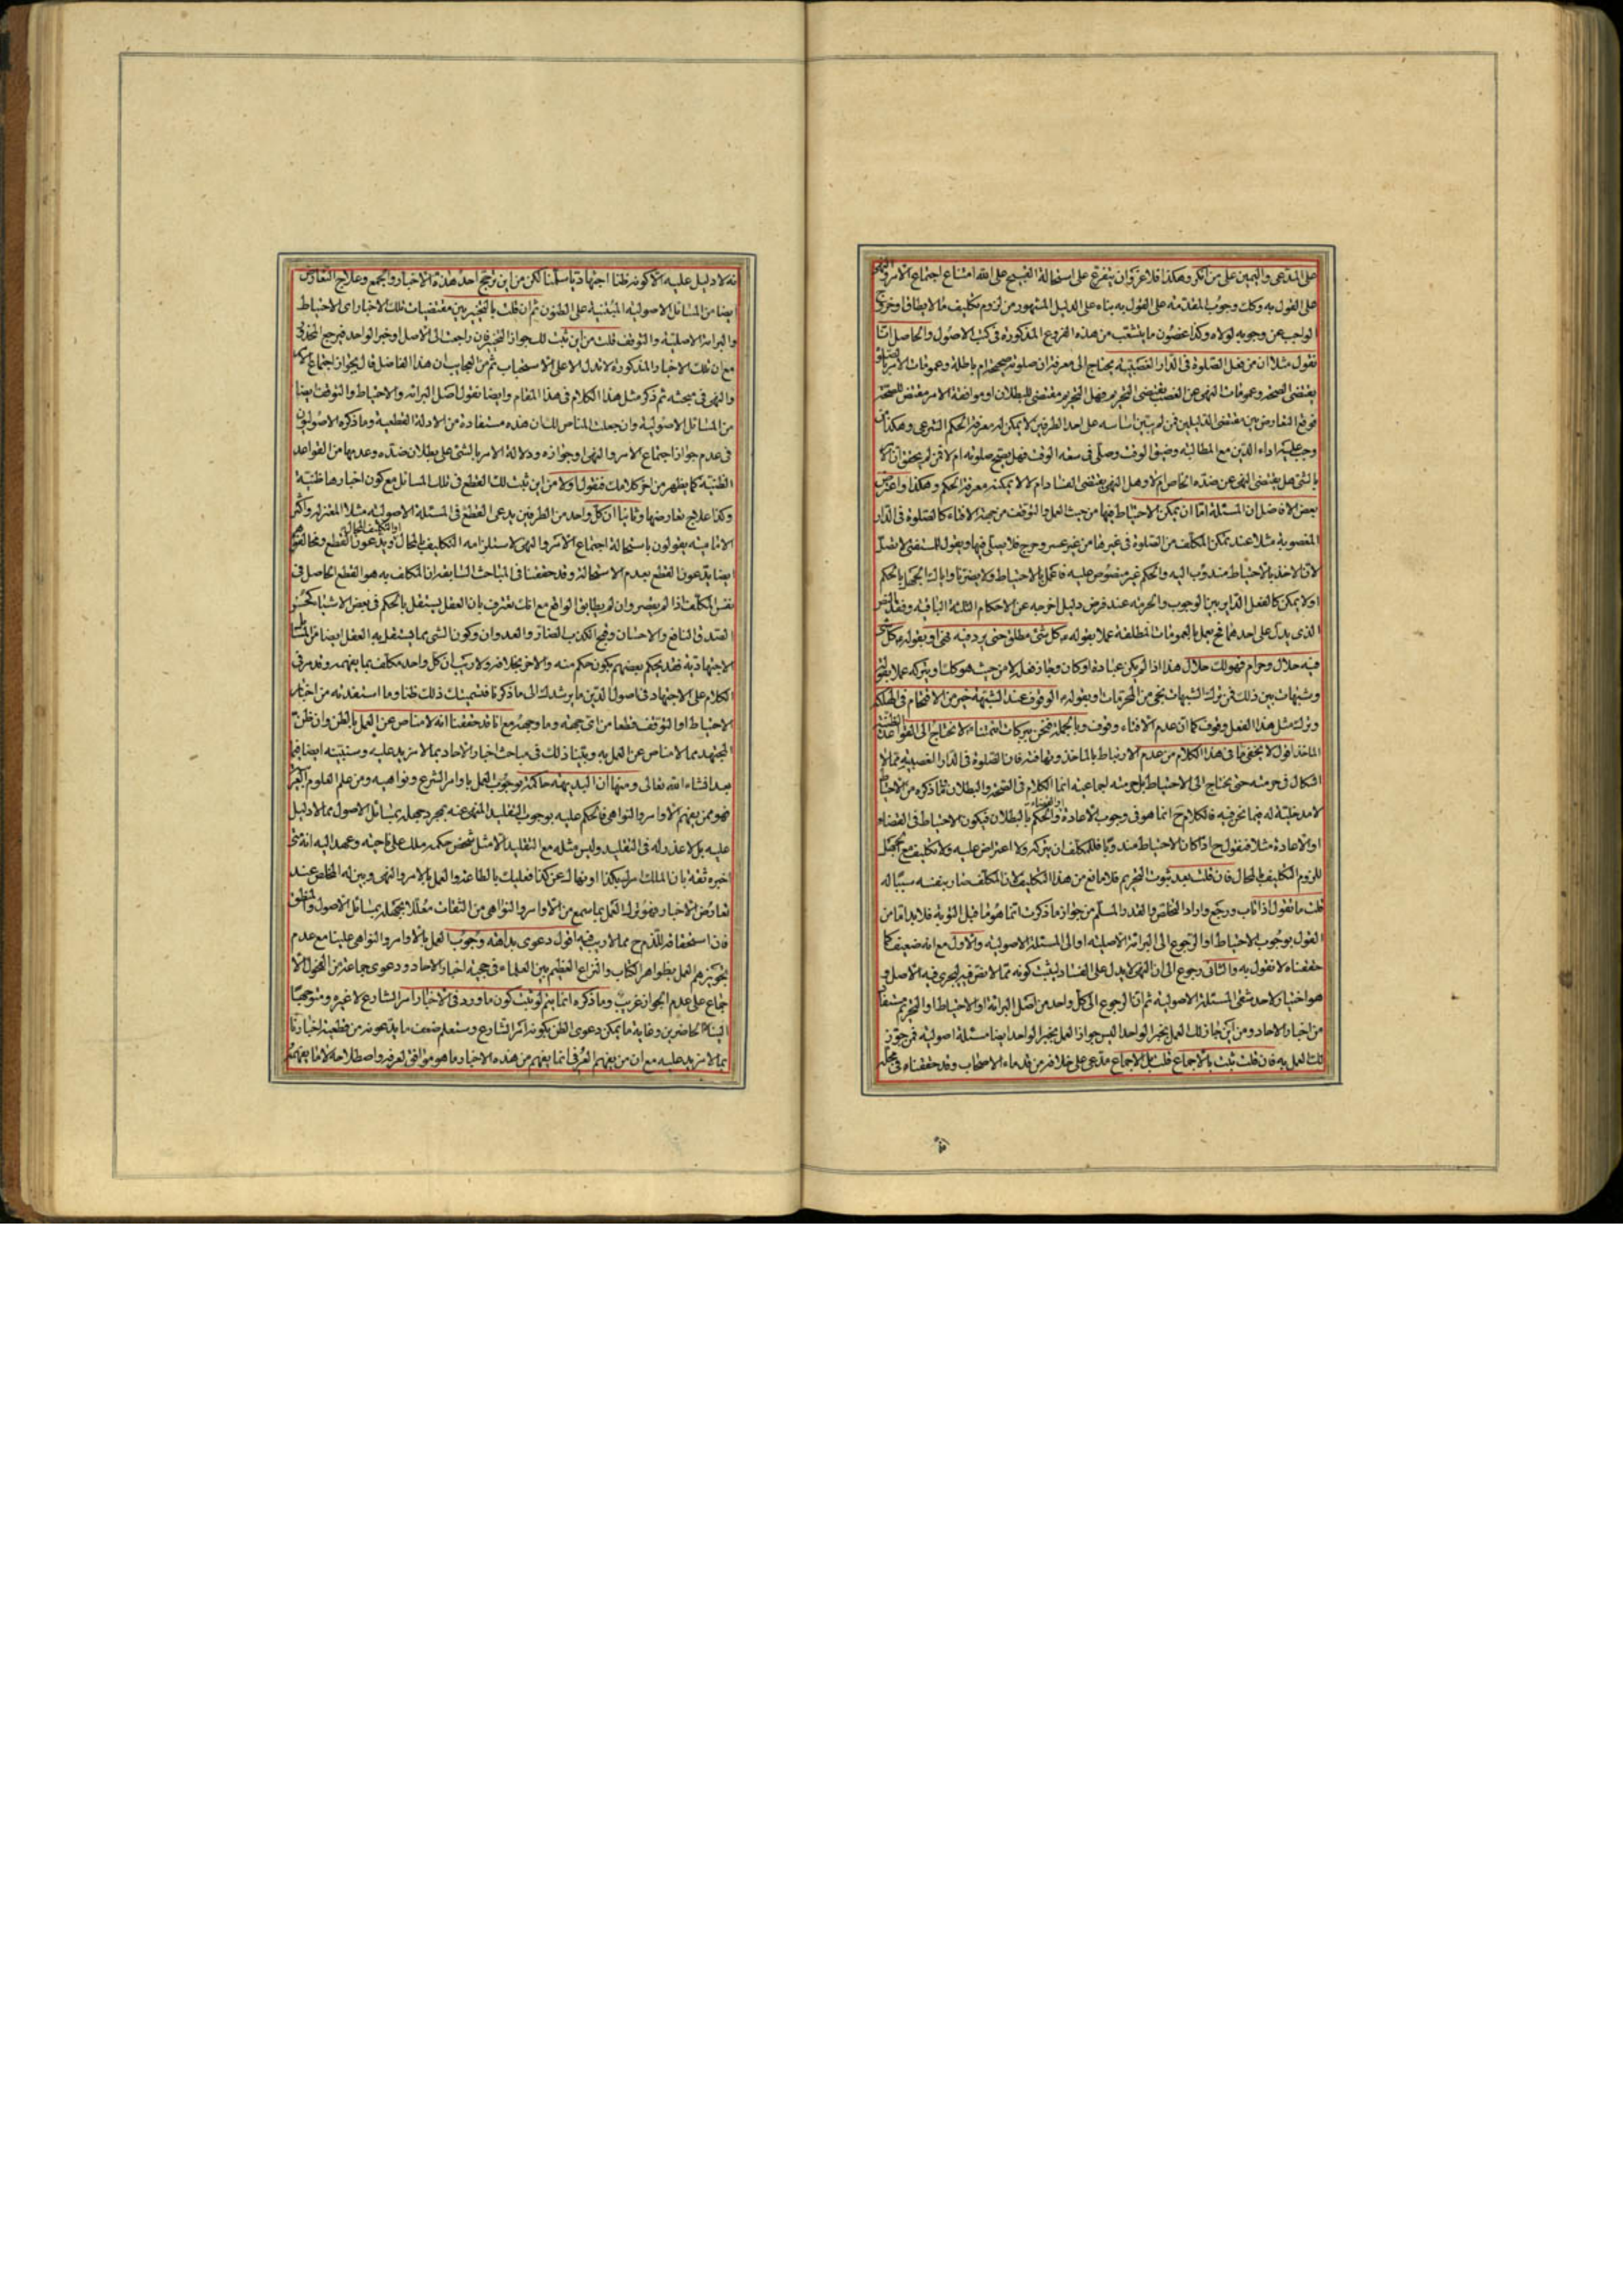 على المدعى واليمين على من انكر وهكذا فلا غرو ان يتفرع على استحالة القبيح على الله امتناع اجتماع الامر والنهى
على القول به وكك وجوب المقدمة على القول به بناء على الدليل المشهور من لزوم تكليف ما لا يطاق او خروج
الواجب عن وجوبه لولاه وكذا غصون ما ينشعب من هذه الفروع المذكورة فى كتب الاصول والحاصل انا
نقول مثلا ان من فعل الصلوة فى الدار الغصبية يحتاج الى معرفة ان صلوته صحيحة ام باطلة وعمومات الامر بالصلوة
يقتضى الصحة وعمومات النهى عن الغصب يقتضى التحريم فهل التحريم مقتضى للبطلان او موافقة الامر مقتض للصحة
فوقع التعارض بين مقتضى الدليلين فمن لم يتبين اساسه على احد الطرفين لا يمكن له معرفة الحكم الشرعى وهكذا من
وجب عليه اداء الدين مع المطالبة وضيق الوقت وصلى فى سعة الوقت فهل يصح صلوته ام لا فمن لم يحقق ان الامر
بالشئ هل يقتضى النهى عن ضده الخاص ام لا وهل النهى يقتضى الفساد ام لا لا يمكنه معرفة الحكم وهكذا واعترض
بعض الافاضل ان المسئلة اما ان يمكن الاحتياط فيها من حيث العمل والتوقف من جهة الافتاء كالصلوة فى الدار
المغصوبة مثلا عند تمكن المكلف من الصلوة فى غيرها من غير عسر وحرج فلا يصلى فيها ويقول للمستفتى لا تصل
لان الاخذ بالاحتياط مندوب اليه والحكم غير منصوص عليه فاعمل بالاحتياط ولا يضرنا واياك الجهل بالحكم
او لا يمكن كالفعل الداير بين الوجوب والحرمة عند فرض دليل اخرجه عن الاحكام الثلثة الباقية وفقد النص
الذى يدل على احدهما فح يعمل بالعمومات المطلقة عملا بقوله كل شئ مطلق حتى يرد فيه نهى او بقوله كل شئ
فيه حلال وحرام فهو لك حلال هذا اذا لم يكن عبادة او كان وجاز فعله لا من حيث هو كك او يتركه عملا بقوله
وشبهات بين ذلك فمن ترك الشبهات نجى من المحرمات او بقوله الوقوف عند الشبهة خير من الاقتحام فى الهلكة
وترك مثل هذا الفعل وقوف كما ان عدم الافتاء وقوف وبالجملة فنحن ببركات ائمتناء لا نحتاج الى القواعد الظنية
الماخذ اقول لا يخفى ما فى هذا الكلام من عدم الارتباط بالماخذ وتهافته فان الصلوة فى الدار الغصبية مما لا
اشكال فى حرمته حتى يحتاج الى الاحتياط بل حرمته اجماعية انما الكلام فى الصحة والبطلان فما ذكره من الاحتياط
لا مدخلية له فيما نحن فيه فالكلام ح انما هو فى وجوب الاعادة والحكم بالبطلان فيكون الاحتياط فى القضاء
او الاعادة مثلا فنقول ح اذا كان الاحتياط مندوبا فللمكلف ان يتركه ولا اعتراض عليه ولا تكليف مع الجهل
للزوم التكليف بالمحال فان قلت بعد ثبوت التحريم فلا مانع من هذا التكليف لان المكلف صار بنفسه سببا له
قلت ما تقول اذا تاب ورجع واراد التخلص والقدر المسلم من جواز ما ذكرت انما هو ما قبل التوبة فلا بد اما من
القول بوجوب الاحتياط او الرجوع الى البرائة الاصلية او الى المسئلة الاصولية والاول مع انه ضعيف كما
حققناه لا نقول به والثانى رجوع الى ان النهى لا يدل على الفساد ليثبت كونه مما لا نص فيه ليجرى فيه الاصل و
هو اختيار لاحد شقى المسئلة الاصولية ثم ان الرجوع الى كل واحد من اصل البرائة او الاحتياط او التخيير مستفاد
من اخبار الاحاد ومن اين جاز لك العمل بخبر الواحد اليس جواز العمل بخبر الواحد ايضا مسئلة اصولية فمن جوز
لك العمل به فان قلت ثبت بالاجماع قلت بل الاجماع مدعى على خلافه من قدماء الاصحاب وقد حققناه فى محله
نه لا دليل عليه الا كونه ظنا اجتهاديا سلمنا لكن من اين ترجح احد هذه الاخبار والجمع وعلاج التعارض
ايضا من المسائل الاصولية المبتنية على الظنون ثم ان قلت بالتخيير بين مقتضيات تلك الاخبار اى الاحتياط
والبرائة الاصلية والتوقف قلت من اين ثبت لك جواز التخيير فان راجعت الى الاصل او خبر الواحد فيرجع المحذور
مع ان تلك الاخبار المذكورة لا تدل الا على الاستحباب ثم من العجايب ان هذا الفاضل قال بجواز اجتماع الامر
والنهى فى مبحثه ثم ذكر مثل هذا الكلام فى هذا المقام وايضا نقول اصل البرائة والاحتياط والتوقف ايضا
من المسائل الاصولية وان جعلت المناص لك ان هذه مستفادة من الادلة القطعية وما ذكره الاصوليون
فى عدم جواز اجتماع الامر والنهى او جوازه ودلالة الامر بالشئ على بطلان ضده وعدمها من القواعد
الظنية كما يظهر من اخر كلامك فنقول اولا من اين ثبت لك القطع فى تلك المسائل مع كون اخبارها ظنية
وكذا علاج تعارضها وثانيا ان كل واحد من الطرفين يدعى القطع فى المسئلة الاصولية مثلا المعتزلة واكثر
الامامية يقولون باستحالة اجتماع الامر والنهى لاستلزامه التكليف بالمحال او التكليف المحال ويدعون القطع ومخالفوهم
ايضا يدعون القطع بعدم الاستحالة وقد حققنا فى المباحث السابقة ان المكلف به هو القطع الحاصل فى
نفس المكلف اذا لم يقصر وان لم يطابق الواقع مع انك تعترف بان العقل يستقل بالحكم فى بعض الاشياء كحسن
الصدق النافع والاحسان وقبح الكذب الضار والعدوان وكون الشئ مما يستقل به العقل ايضا من المسائل
الاجتهادية فقد يحكم بعضهم بكون حكم منه والاخر بخلافه ولا ريب ان كل واحد مكلف بما يفهمه وقد مر فى
الكلام على الاجتهاد فى اصول الدين ما يرشدك الى ما ذكرنا فتسميتك ذلك ظنا وما استفدته من اخبار
الاحتياط او التوقف قطعا من اى جهة وما وجهه مع انا قد حققنا انه لا مناص عن العمل بالظن وان ظن
المجتهد مما لا مناص عن العمل به وبينا ذلك فى مباحث اخبار الاحاد بما لا مزيد عليه وسنبينه ايضا فيما
بعد انشاء الله تعالى ومنها ان البديهة حاكمة بوجوب العمل باوامر الشرع ونواهيه ومن علم العلوم العربية
فهو ممن يفهم الاوامر والنواهى فالحكم عليه بوجوب التقليد المنهى عنه بمجرد جهله بمسائل الاصول مما لا دليل
عليه بل لا عذر له فى التقليد وليس مثله مع التقليد الا مثل شخص حكمه ملك على ناحية وعهد اليه انه متى
اخبره ثقة بان الملك امرك بكذا او نهاك عن كذا فعليك بالطاعة والعمل بالامر والنهى وبين له المخلص عند
تعارض الاخبار فهو ترك العمل بما سمع من الاوامر والنواهى من الثقات معللا بجهله بمسائل الاصول والمنطق
فان استحقاقه للذم ح مما لا ريب فيه اقول دعوى بداهة وجوب العمل بالاوامر والنواهى علينا مع عدم
تجويزهم العمل بظواهر الكتاب والنزاع العظيم بين العلماء فى حجية اخبار الاحاد ودعوى جماعة من الفحول الا
جماع على عدم الجواز غريب وما ذكره انما يتم لو ثبت كون ما ورد فى الاخبار امر الشارع لا غيره ومتوجها
الينا كالحاضرين وغاية ما يمكن دعوى الظن بكونه امر الشارع وستعلم ضعف ما يدعونه من قطعية اخبارنا
بما لا مزيد عليه مع ان من يفهم العرف انما يفهم من هذه الاخبار ما هو موافق لعرفه واصطلاحه لا ما يفهمه